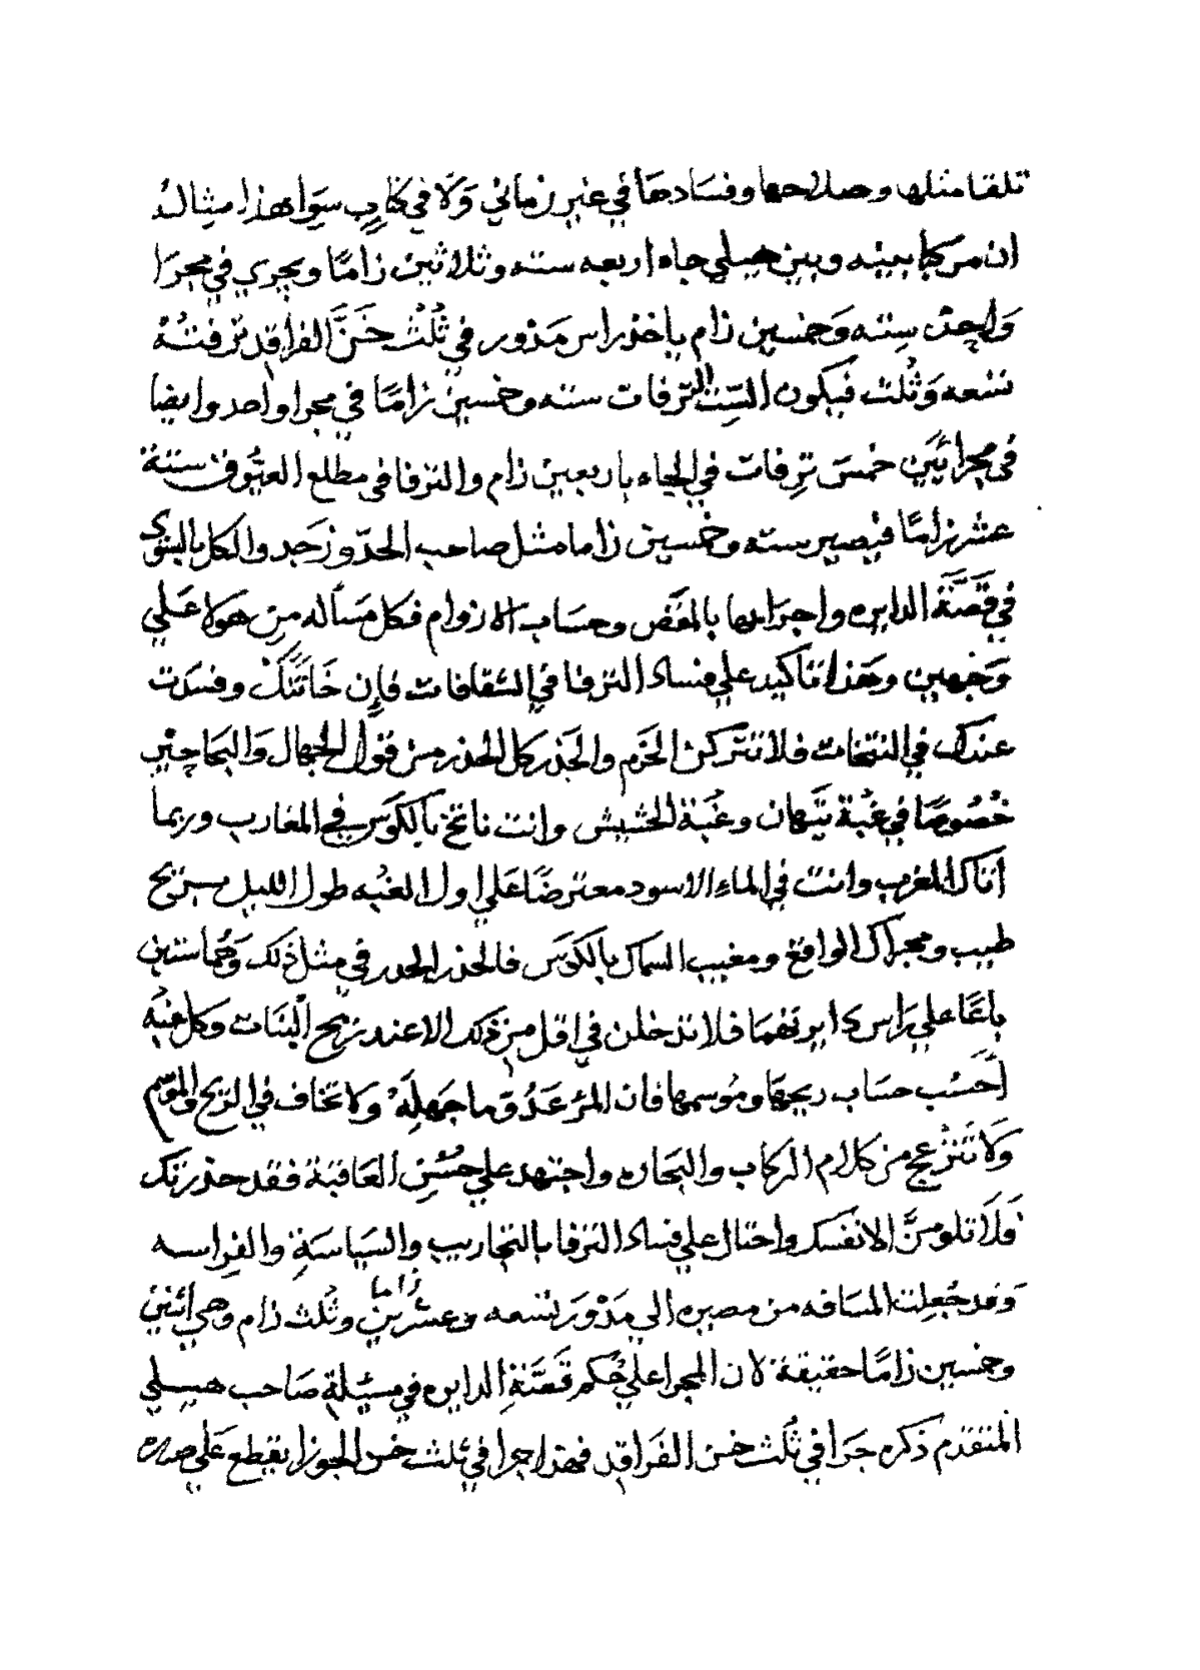 تلقا مثلها وصلاحها وفسادها في غير زماني وَلَا في كتابٍ سوا هذا مِثالهُ
ان مركبا بينه وبين هيلي جاه اربعه سته وثلاثين زامًا ويجري في مجرَا
وَاحِدٌ سِته وَخمسين زام ياخذ راس مَدْور في ثُلُث خَنِّ الفراقِد تِرفتُهُ
تسعه وَثُلث فيكون السِّت الترفات سته وخمسين زامًا في مجرا واحد وايضا
في مجرائَين خمسَ تِرِفات في الجاه باربعين زام والترفا في مطلع العيُّوق ستةَ
عشر زامًا فيصير سته وخمسين زاما مثل صاحب الحدّ ورَجد والكل بالسَّوى
في قَصَّةَ الدايره واجرايها بالنقص وحسَاب الازوام فكل مَسأله مِن هَولا عَلي
وَجهين وهَذا تاكيد علي فساد الترفا في الشقاقات فإِن خَانَتكْ وفسدَت
عندك في النتخات فلا تتركن الحَزم والحَذر كل الحذر من قَول الجهال وَالبحاحِير
خُصُوصًا في غُبّة تيهان وغُبَة الحشيش وانت ناتخ بالكوَس في المغارب وربما
اتاك المغرب وانت في الماءِ الاسود معترضًا عَلي اول الغبُه طول الليل بريح
طيب ومجراك الواقع ومغيب السماك بالكوَس فالحذر الحدر في مثل ذلك وَهُما ستين
باعًا علي رَاس كا ابو نهما فلا تدخلن في اقل من ذلك الا عند ريح البنَات وكل غبُه
اَحسُب حسَاب ريحها ومُوسمها فان المرْ عَدُوّ ما جَهلَهْ وَلا تخاف في الريح والموّسم
وَلا تَنزعج من كلام الركاب والبحاره واجتهد علي حُسنِ العَاقبَة فقد حذرتك
وَلَا تلومَنَّ الا نفسك واحتال علي فساد الترفا بالتجاريب والسيَاسَةِ والفِراسه
وَقد جُعِلت المسَافه من مصيره الي مَدْورَ تسعه وعشرين زاما وثُلث زام وهي اثنين
وخمسين زامًا حقيقةَ لان المجرا علي حُكم قَصَّةِ الدايره في مسئلةِ صَاحب هيلي
المتقدم ذكره جَرَا في ثُلث خن الفَراقِد فهذا جرا في ثلث خن الجوزا يقطع عَلي